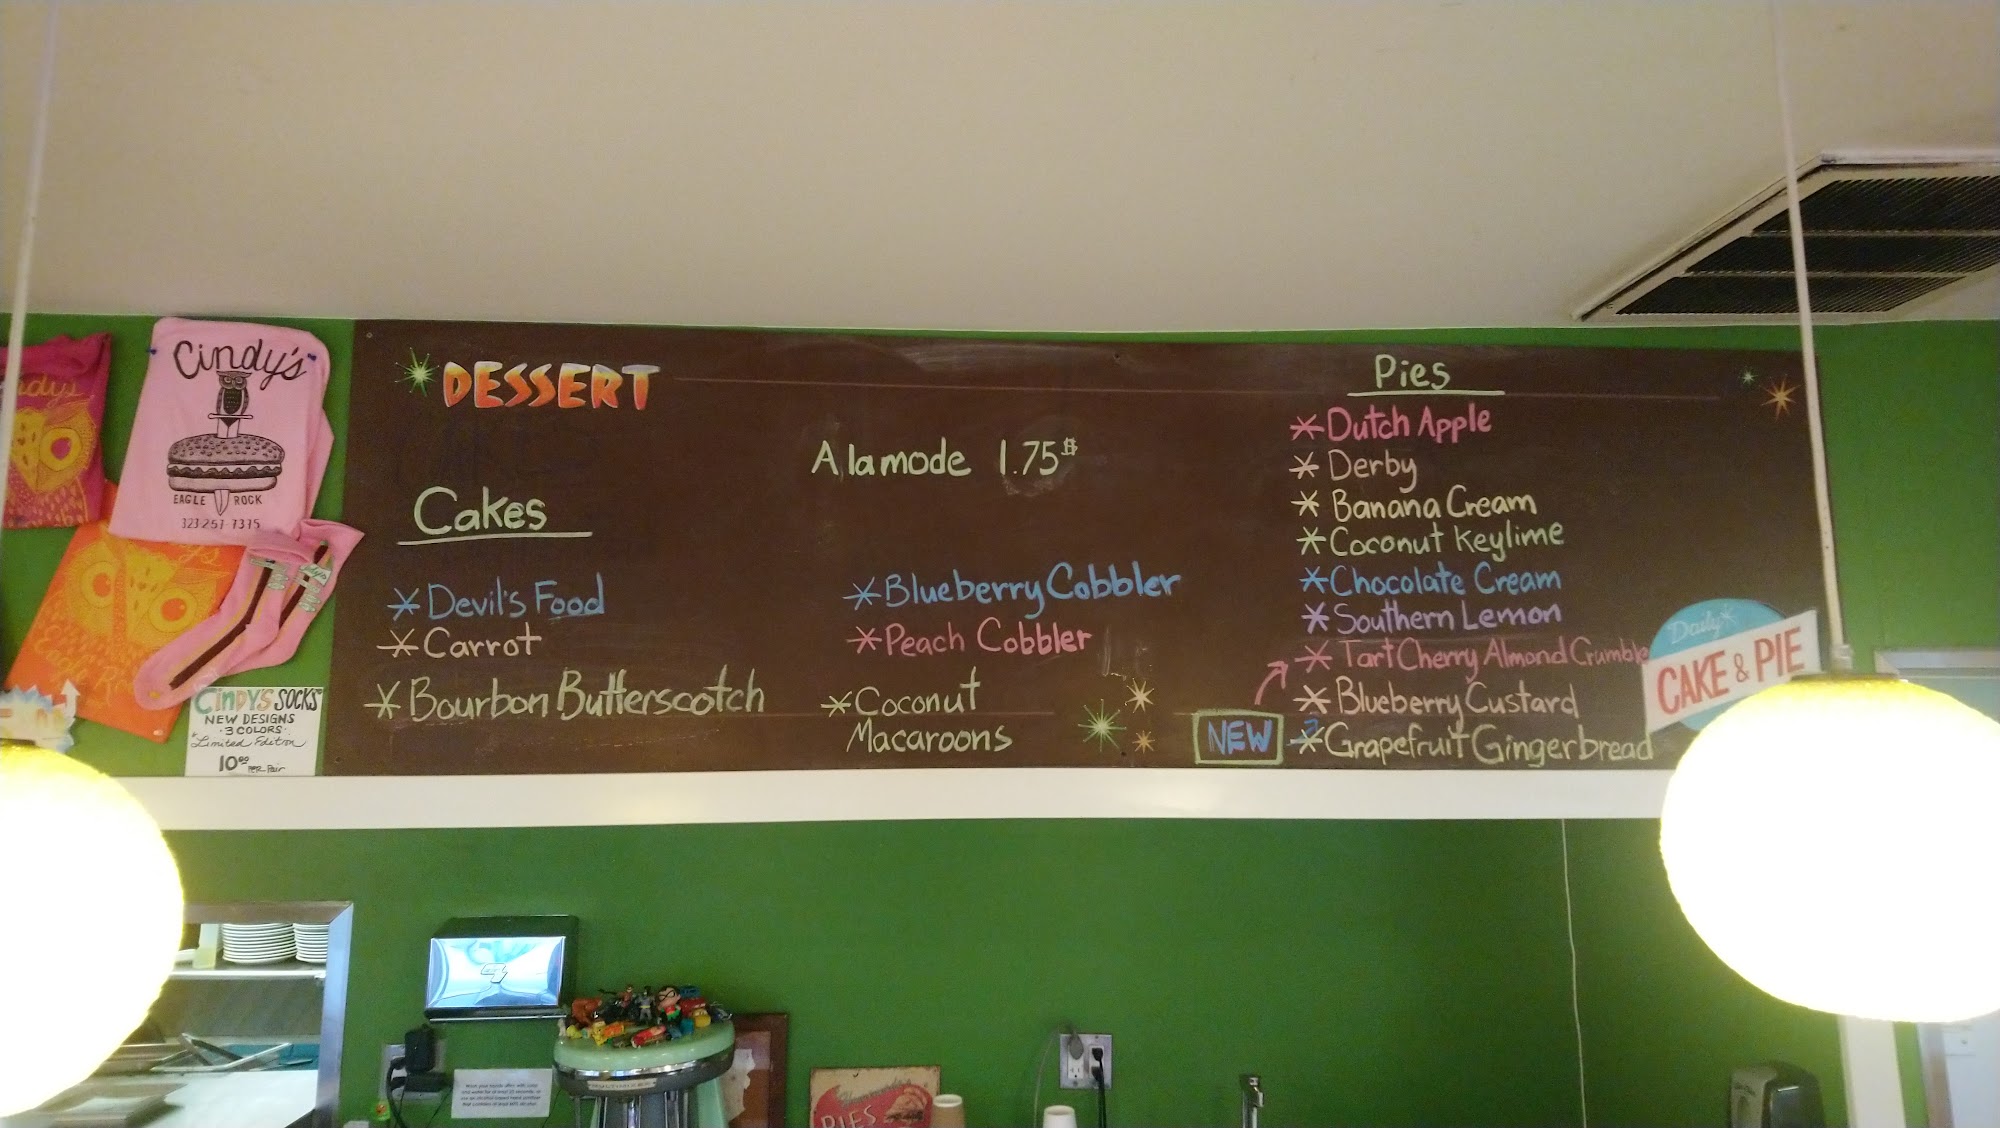 Cindy's
EAGLE ROCK
323·257-7375
CINDY'S SOCKS
NEW DESIGNS
·3 COLORS·
*Limited Edition
10⁰⁰ PER Pair
DESSERT
Cakes
*Devil's Food
*Carrot
*Bourbon Butterscotch
A lamode 1.75$
*Blueberry Cobbler
*Peach Cobbler
*Coconut
Macaroons
Pies
*Dutch Apple
*Derby
*Banana Cream
*Coconut Keylime
*Chocolate Cream
*Southern Lemon
*Tart Cherry Almond Crumble
*Blueberry Custard
NEW *Grapefruit Gingerbread
Daily
CAKE & PIE
PIES